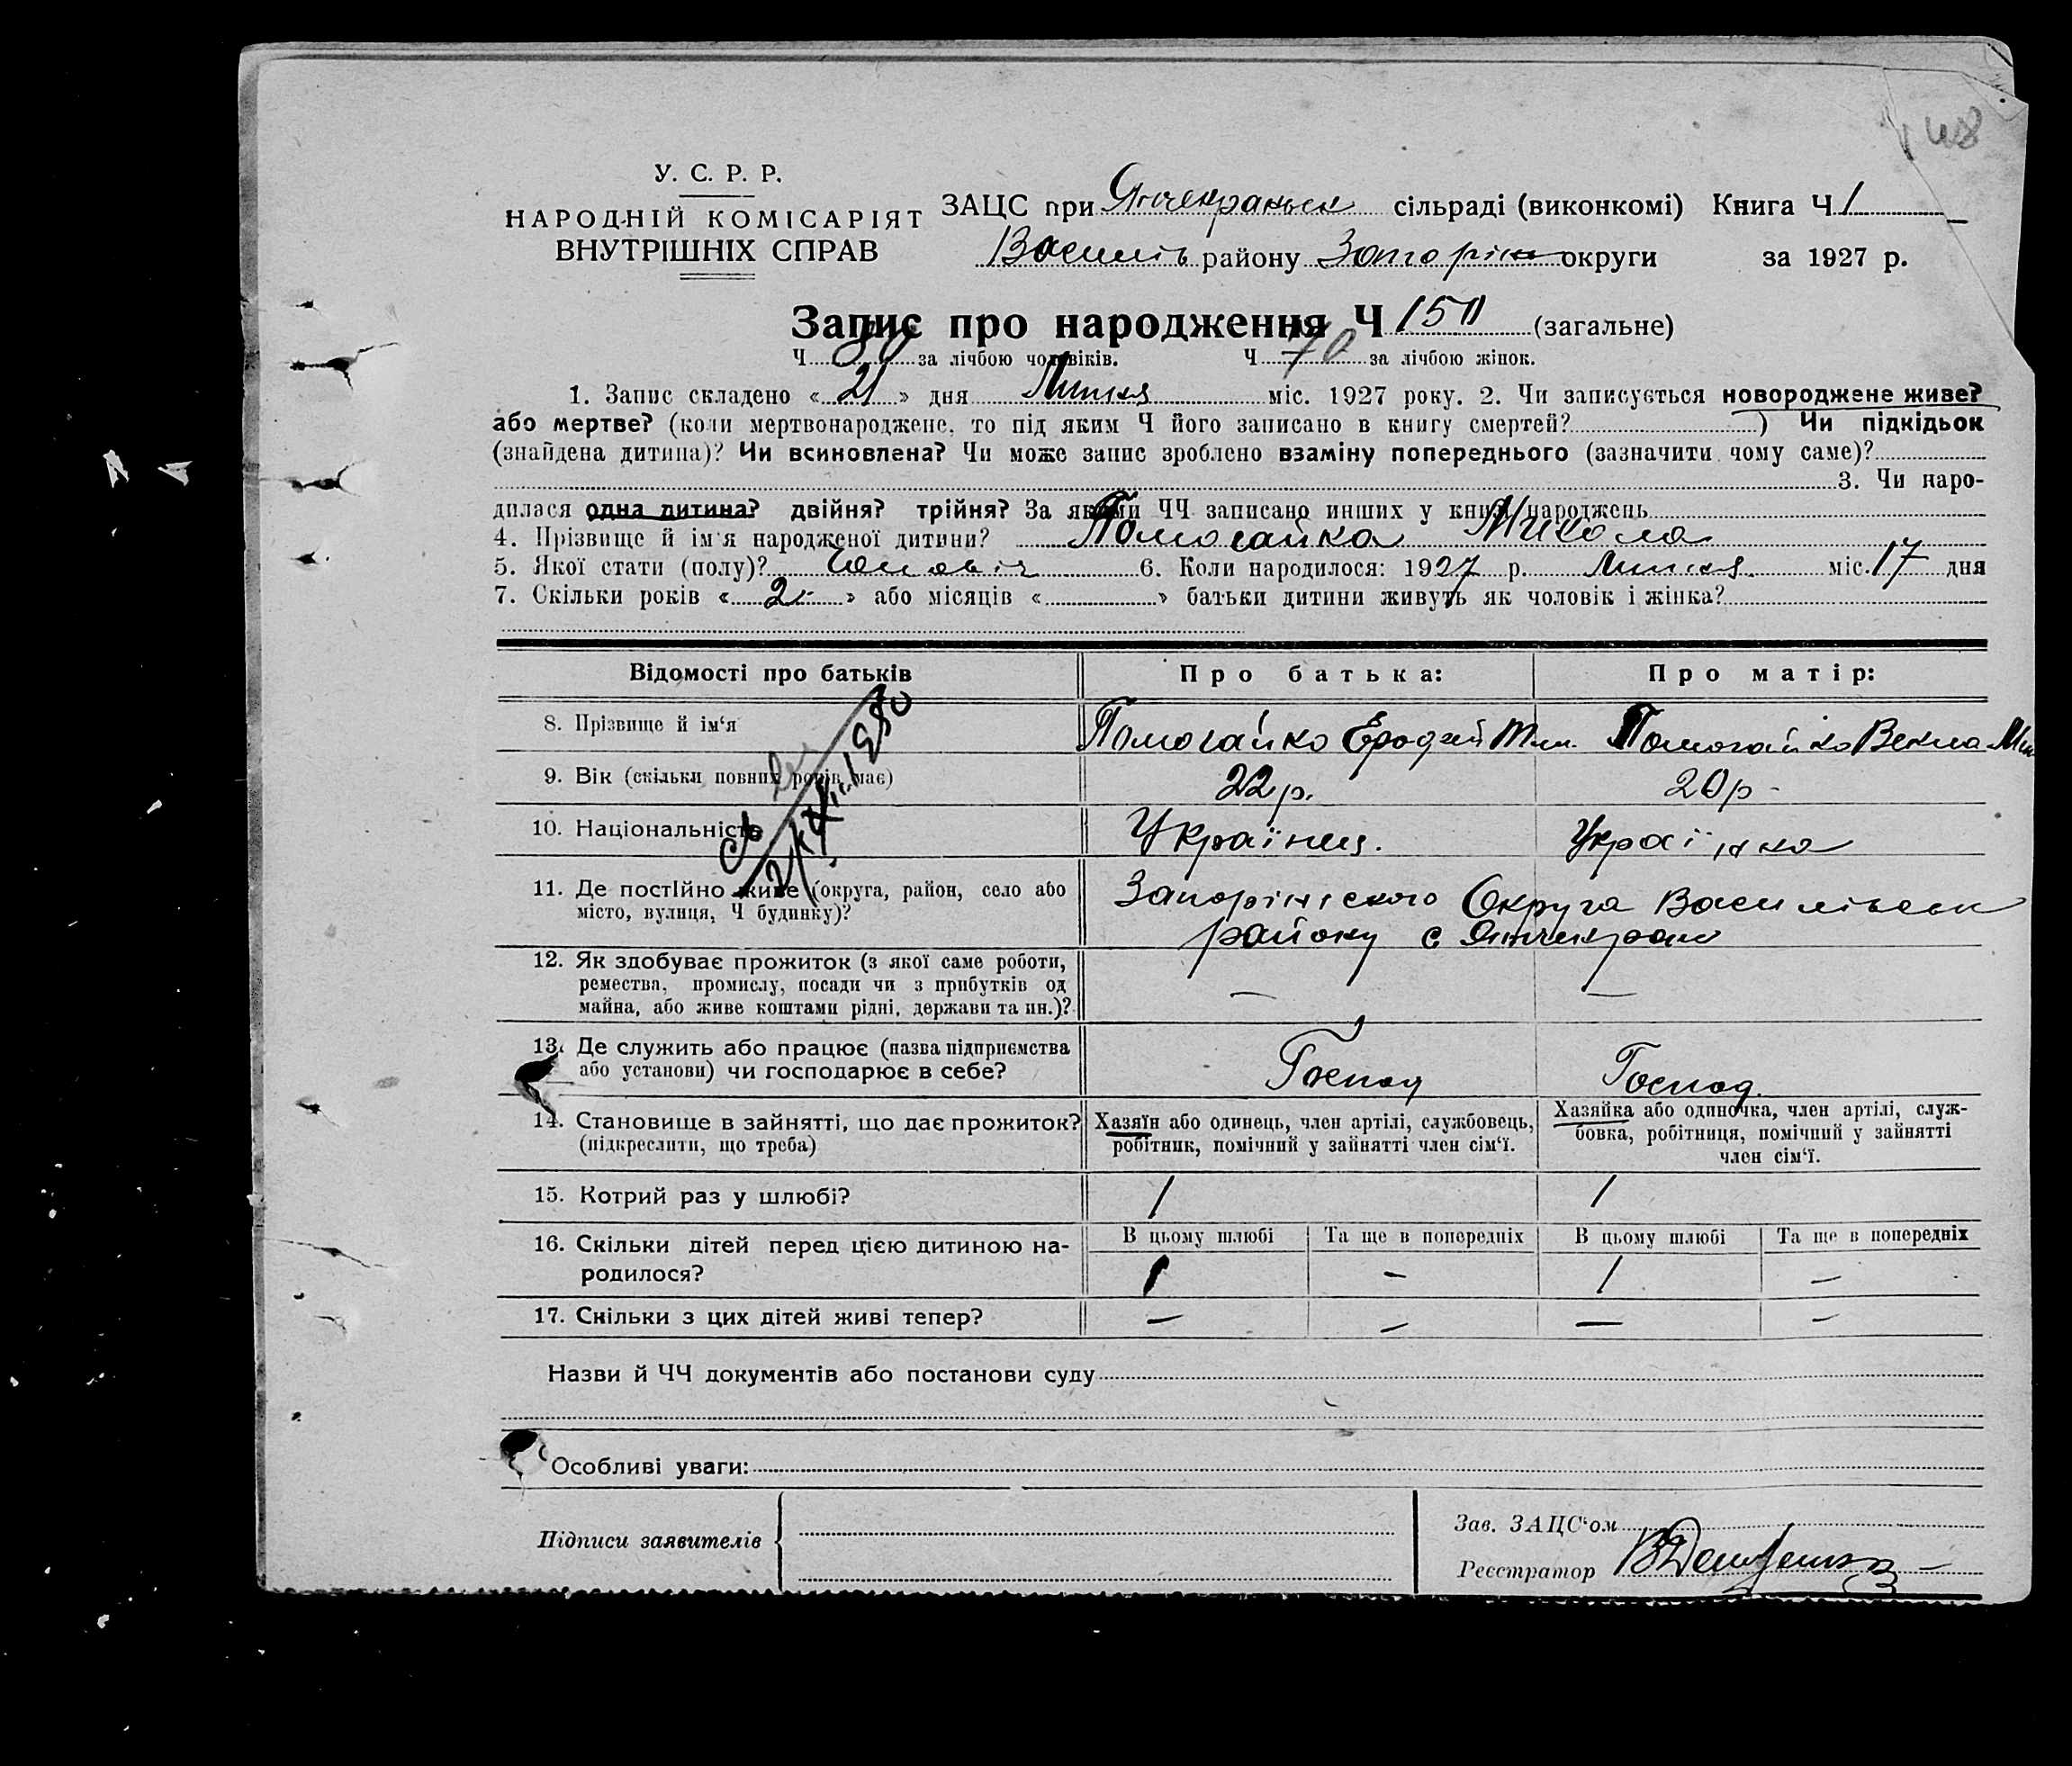 148
У. С. Р. Р.
НАРОДНІЙ КОМІСАРІЯТ
ВНУТРІШНІХ СПРАВ
ЗАЦС при Янчекраньск сільраді (виконкомі) Книга Ч 1
Василів району Запоріж округи за 1927 р.
Запис про народження Ч 150 (загальне)
Ч 80 за лічбою чоловіків. Ч 70 за лічбою жінок.
1. Запис складено « 21 » дня Липня міс. 1927 року. 2. Чи записується новороджене живе?
або мертве? (коли мертвонароджене, то під яким Ч його записано в книгу смертей? ) Чи підкідьок
(знайдена дитина)? Чи всиновлена? Чи може запис зроблено взаміну попереднього (зазначити чому саме)?
3. Чи наро-
дилася одна дитина? двійня? трійня? За якими ЧЧ записано инших у книзі народжень
4. Прізвище й ім'я народженої дитини? Помогайко Микола
5. Якої стати (полу)? Чоловіч 6. Коли народилося: 1927 р. Липня міс. 17 дня
7. Скільки років « 2 » або місяців « » батьки дитини живуть як чоловік і жінка?
Відомості про батьків Про батька: Про матір:
8. Прізвище й ім'я Помогайко Помогайко Векла
9. Вік (скільки повних років має) 22 р. 20 р
10. Національність Українец. Українка
11. Де постійно живе (округа, район, село або
місто, вулиця, Ч будинку)?
Запоріжского Округа Василівськ
району с Янчекрак
12. Як здобуває прожиток (з якої саме роботи,
ремества, промислу, посади чи з прибутків од
майна, або живе коштами рідні, держави та ин.)? — —
13. Де служить або працює (назва підприємства
або установи) чи господарює в себе? Господ Господ.
14. Становище в зайнятті, що дає прожиток?
(підкреслити, що треба)
Хазяїн або одинець, член артілі, службовець,
робітник, помічний у зайнятті член сім'ї.
Хазяйка або одиночка, член артілі, служ-
бовка, робітниця, помічний у зайнятті
член сім'ї.
15. Котрий раз у шлюбі? 1 1
16. Скільки дітей перед цією дитиною на-
родилося?
В цьому шлюбі Та ще в попередніх В цьому шлюбі Та ще в попередніх
1 - 1 -
17. Скільки з цих дітей живі тепер? — — — —
Назви й ЧЧ документів або постанови суду
Особливі уваги:
Підписи заявителів
Зав. ЗАЦС'ом
Реєстратор